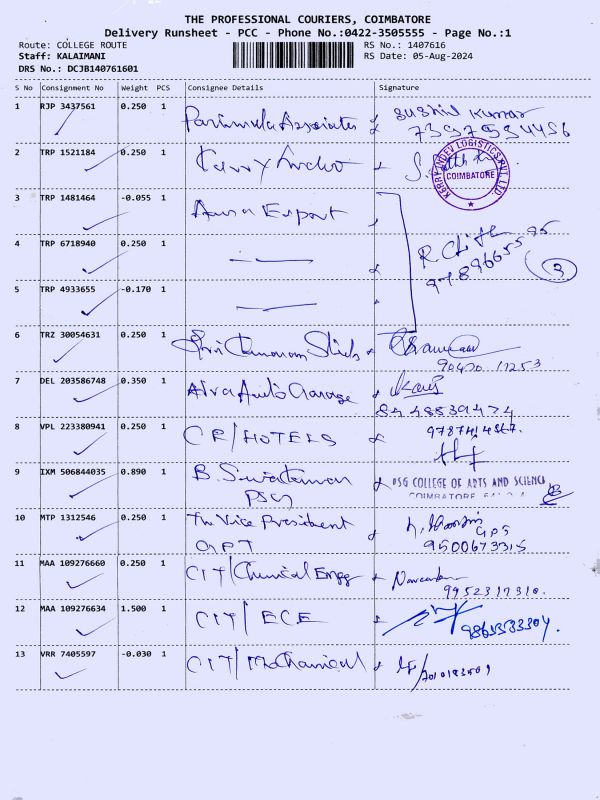 THE PROFESSIONAL COURIERS, COIMBATORE
Delivery Runsheet - PCC - Phone No.:0422-3505555 - Page No.:1
Route: COLLEGE ROUTE RS No.: 1407616
Staff: KALAIMANI RS Date: 05-Aug-2024
DRS No.: DCJB140761601
S No Consignment No Weight PCS Consignee Details Signature
1 RJP 3437561 0.250 1 Parimula Associates Sushil Kumar
7397534456
2 TRP 1521184 0.250 1 Kerry
KERRY INDEV LOGISTICS PVT LTD
COIMBATORE
3 TRP 1481464 -0.055 1 Export
4 TRP 6718940 0.250 1 — " —
3
5 TRP 4933655 -0.170 1
6 TRZ 30054631 0.250 1
7 DEL 203586748 0.350 1 Auto Garage
8448839474
8 VPL 223380941 0.250 1 CR/HOTELS
9 IXM 506844035 0.890 1 B.
PSG
PSG COLLEGE OF ARTS AND SCIENCE
COIMBATORE
10 MTP 1312546 0.250 1 The Vice President
GPT
9500673315
11 MAA 109276660 0.250 1 CIT/Chemical Engg
9952317310.
12 MAA 109276634 1.500 1 CIT/ECE
13 VRR 7405597 -0.030 1 CIT/Mechanical